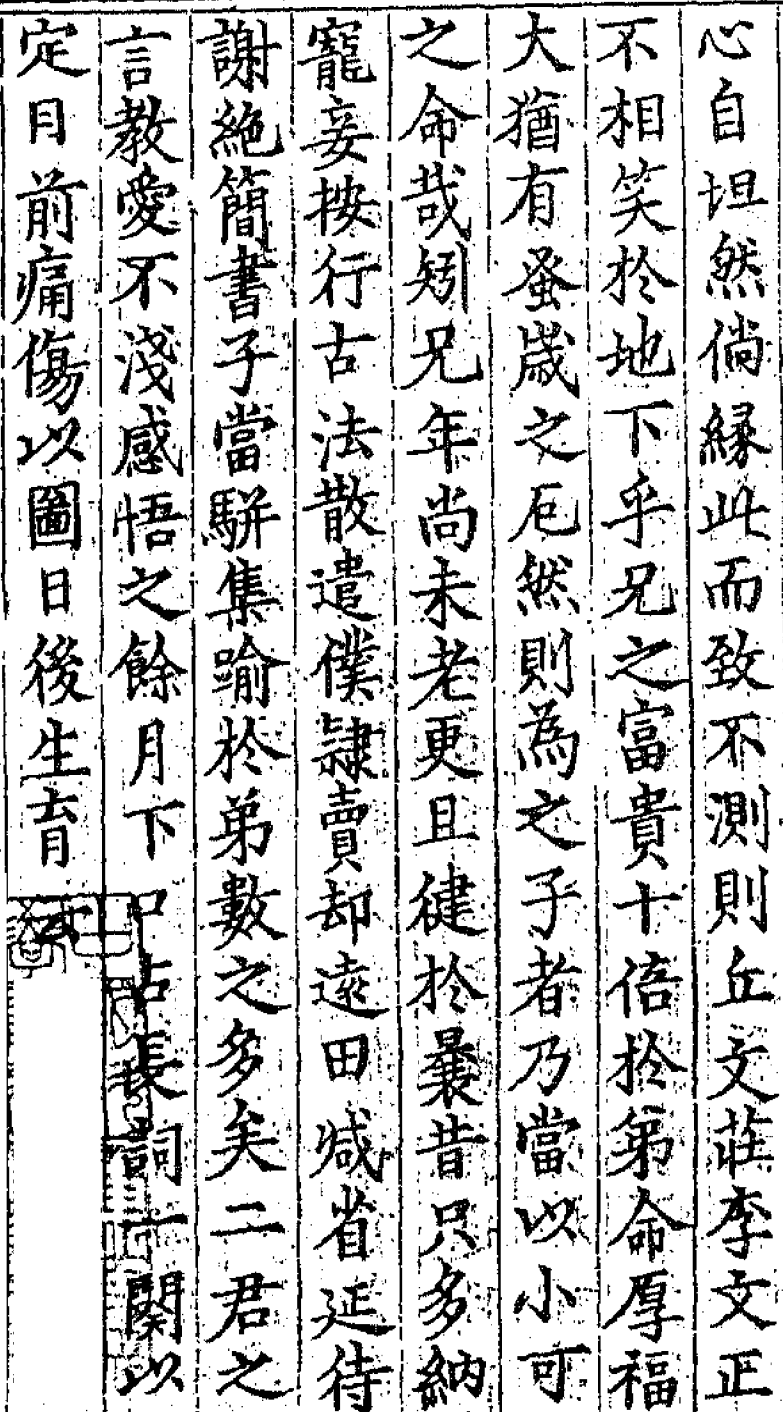 心自坦然倘縁此而致不測則丘文莊李文正
不相笑於地下乎兄之富貴十倍於第命厚福
大猶有蚤歲之厄然則為之子者乃當以小可
之命哉矧兄年尚未老更且健於曩昔只多納
寵妾按行古法散遣僕隷賣却遠田减省延待
謝絶簡書子當駢集踰於弟數之多矣二君之
言教愛不淺感悟之餘月下口占長詞一闋以
定目前痛傷以圖日後生育